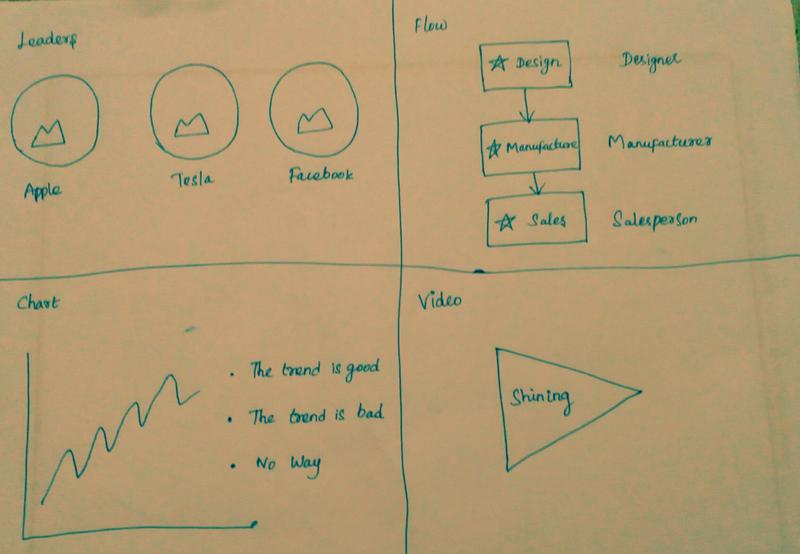 Leaders
Apple
Tesla
Facebook
Flow
Design
Designer
Manufacture
Manufacturer
Sales
Salesperson
Chart
• The trend is good
• The trend is bad
• No Way
Video
Shining